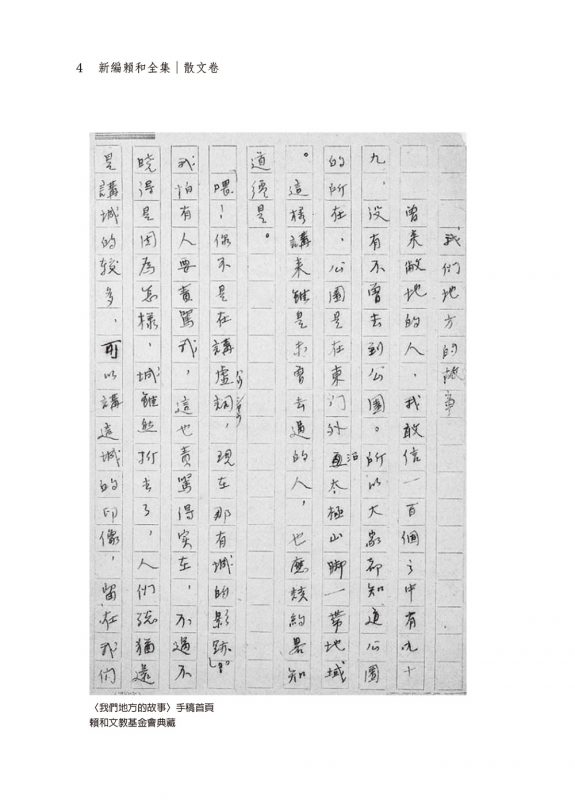 4 新編賴和全集｜散文卷
我們地方的故事
曾来敝地的人，我敢信一百個之中有九十
九，没有不曾去到公園。所以大家都知道公園
的所在，公園是在東门外沿太極山脚一帶地域
。這樣講来雖是未曾去過的人，也應該約畧知
道纔是。
「喂！你不是在講虛詞，現在那有城的影跡？」
我怕有人要責罵我，這也責罵得实在，不過不
曉得是因為怎樣，城雖然拆去了，人們總猶還
是講城的較多，可以講這城的印像，留在我們
〈我們地方的故事〉手稿首頁
賴和文教基金會典藏